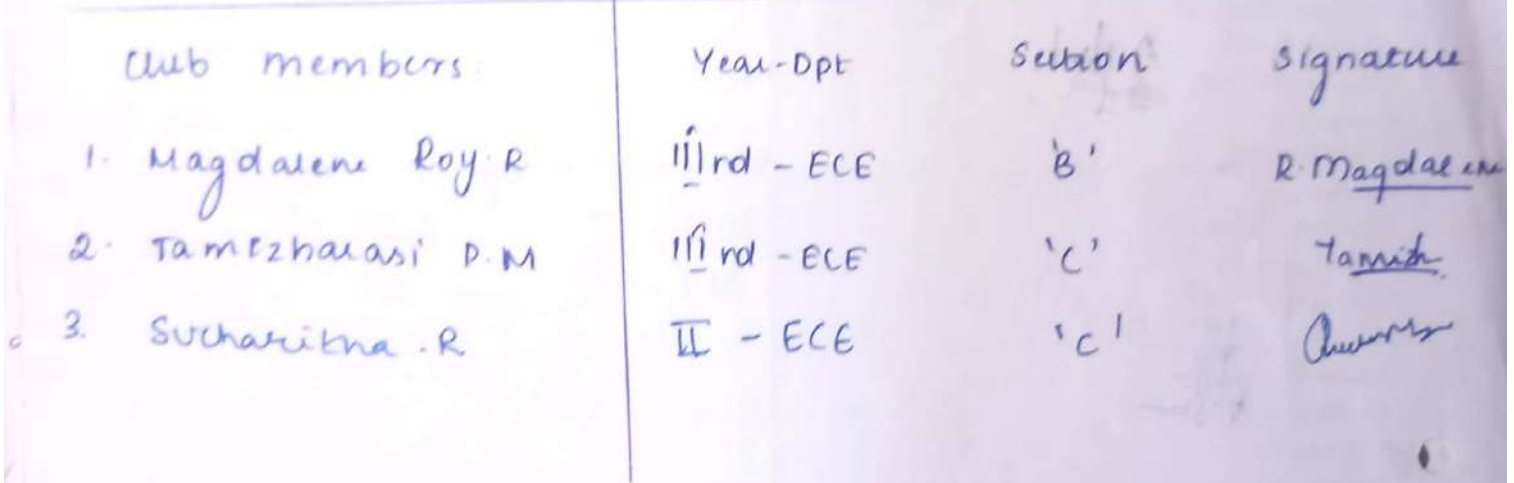 Club members: Year-Dpt Section Signature
1. Magdalene Roy. R IIIrd - ECE 'B' R. Magdalene
2. Tamizharasi P.M IIIrd - ECE 'C' Tamizh
3. Sucharitha . R II - ECE 'C'